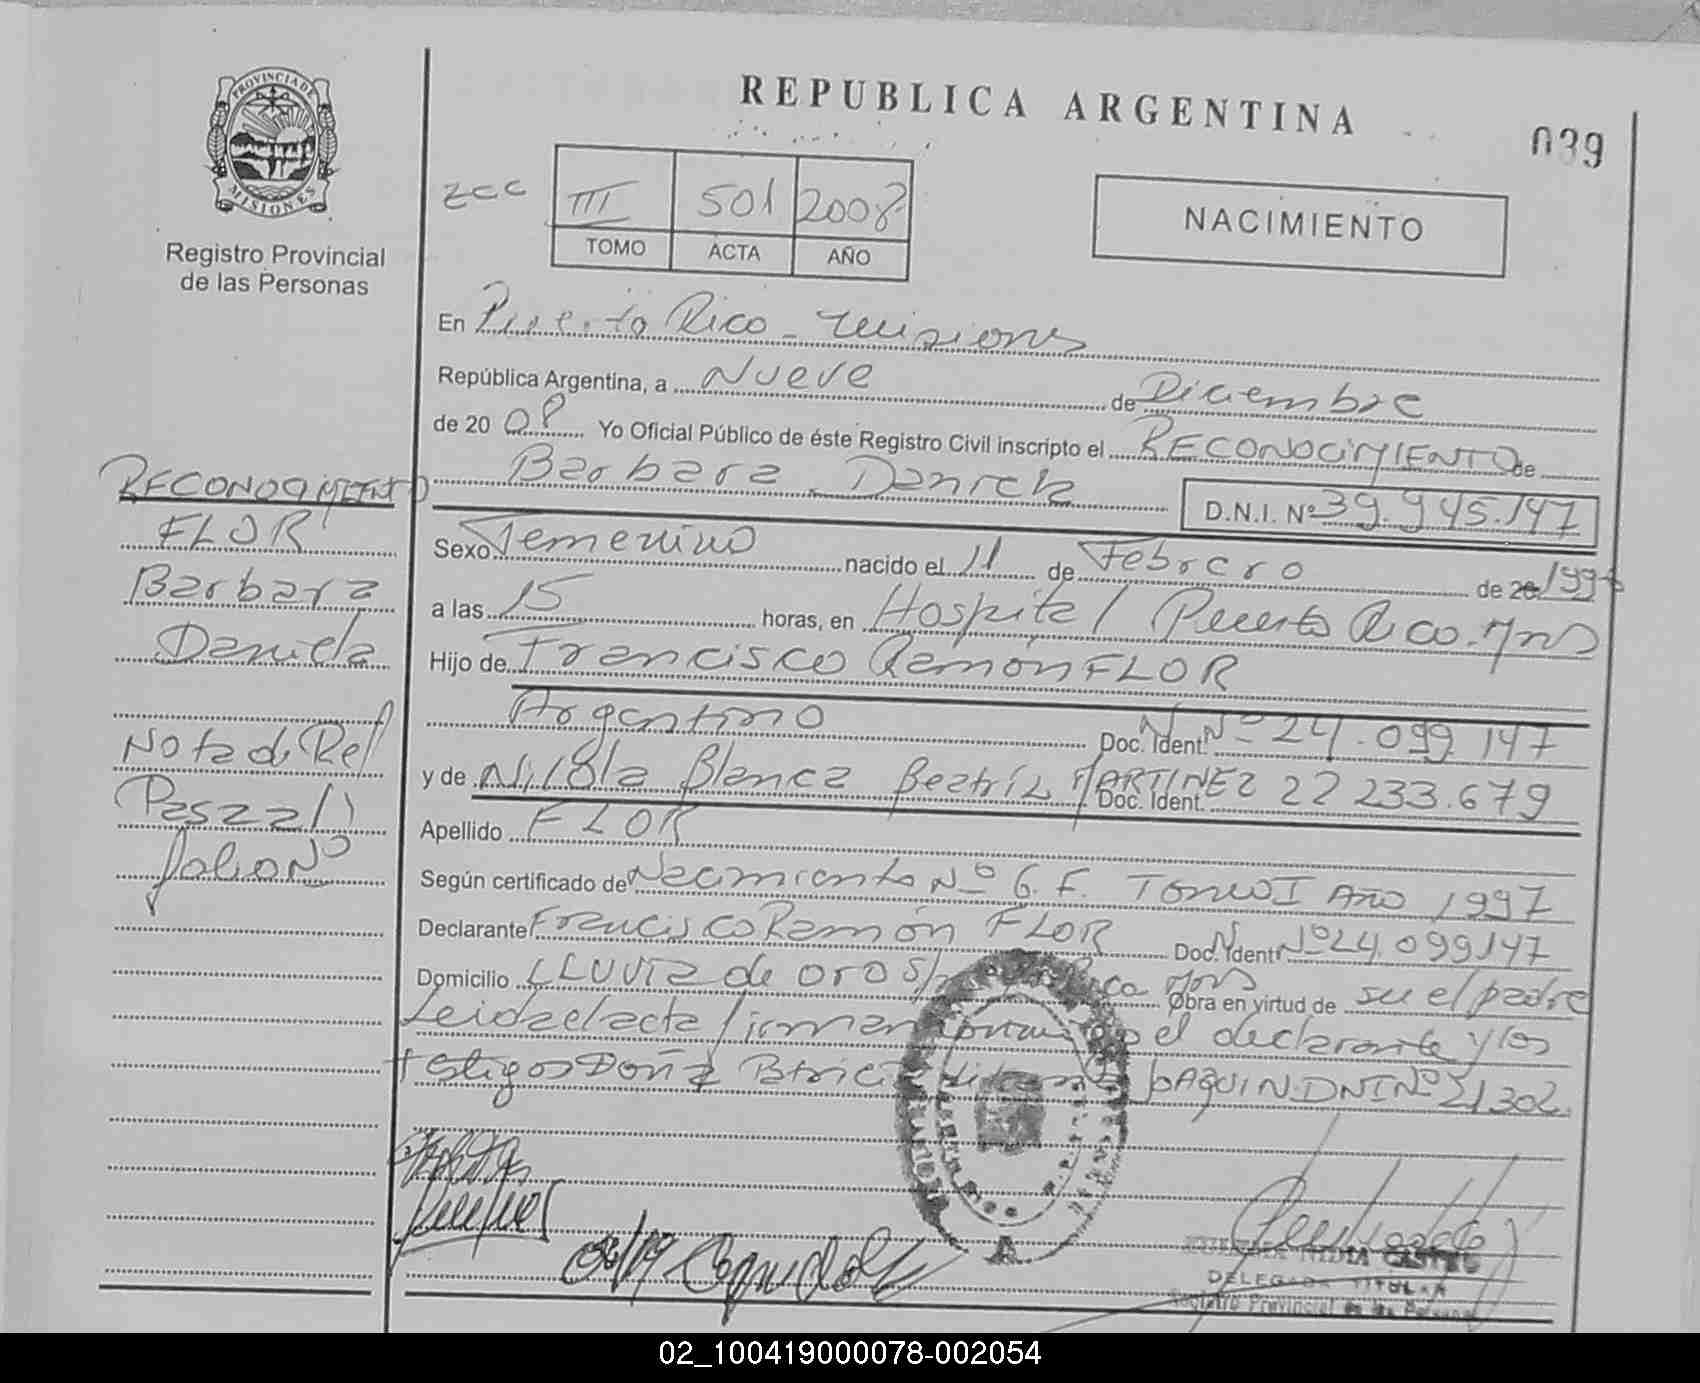 REPUBLICA ARGENTINA
039
PROVINCIA DE
MISIONES
Registro Provincial
de las Personas
zcc
III 501 2008
TOMO ACTA AÑO
NACIMIENTO
En Puerto Rico - Misiones
República Argentina, a Nueve de Diciembre
de 20 08 Yo Oficial Público de éste Registro Civil inscripto el RECONOCIMIENTO de
Barbara Daniela D.N.I. Nº 39.945.147
Sexo Femenino nacido el 11 de Febrero de 20 1997
a las 15 horas, en Hospital Puerto Rico. Mns
Hijo de Francisco Ramón FLOR
Argentino Doc. Ident. Nº 24.099 147
y de Blanca Beatriz MARTINEZ Doc. Ident. 22 233.679
Apellido FLOR
Según certificado de Nacimiento Nº 6. F. Tomo I Año 1997
Declarante Francisco Ramón FLOR Doc. Ident. Nº 24.099147
Domicilio LLUVIA de oro S/ Rico Mns Obra en virtud de su el padre
Leida el acta firman el declarante y los
testigos Doña JOAQUIN DNI Nº 21302
RECONOCIMIENTO
FLOR
Barbara
Daniela
Nota de Ref
Pasa al
folio Nº
NIDIA
DELEGADA TITULAR
Registro Provincial de las Personas
02_100419000078-002054